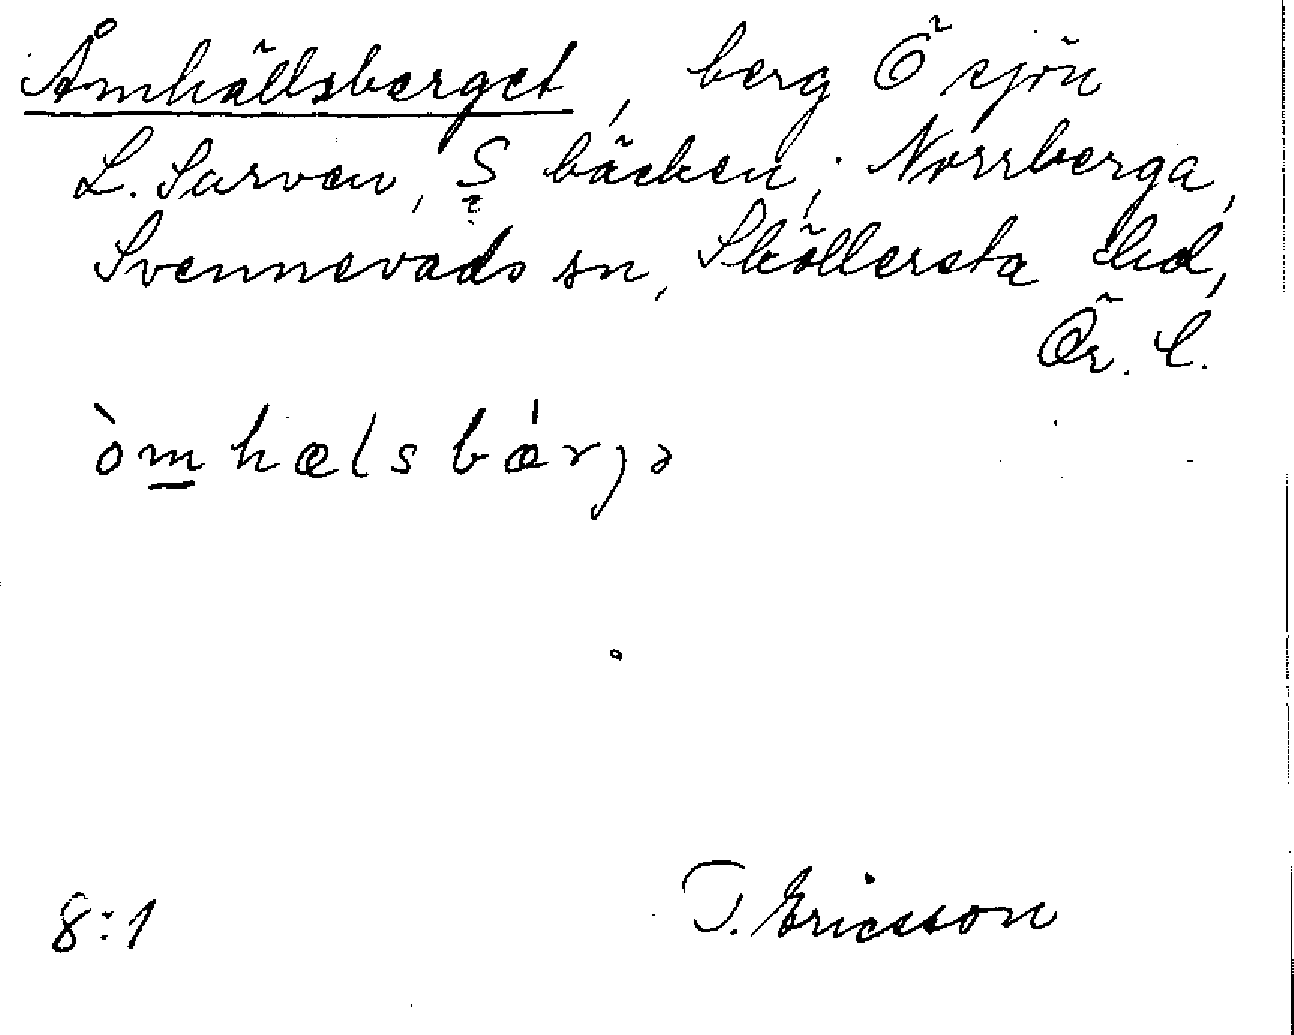 Åmhällsberget, berg Ö sjön
L. Sarven, S bäcken, Norrberga,
Svennevads sn, Sköllersta hd,
Ör. l.
òmhælsbærjə
8:1 T. Ericsson